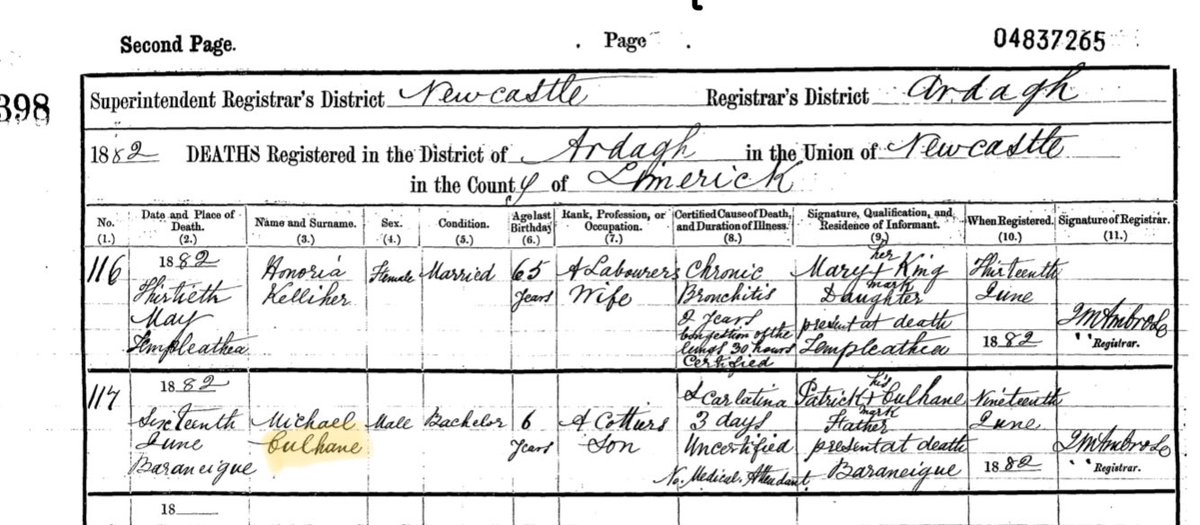 Second Page.
Page
04837265
398
Superintendent Registrar's District Newcastle Registrar's District Ardagh
1882 DEATHS Registered in the District of Ardagh in the Union of Newcastle
in the County of Limerick
No. (1.)
Date and Place of Death. (2.)
Name and Surname. (3.)
Sex. (4.)
Condition. (5.)
Age last Birthday (6.)
Rank, Profession, or Occupation. (7.)
Certified Cause of Death, and Duration of Illness. (8.)
Signature, Qualification, and Residence of Informant. (9.)
When Registered. (10.)
Signature of Registrar. (11.)
116
1882
Thirtieth
May
Templeathea
Honoria
Kelliher
Female
Married
65
Years
A Labourers
Wife
Chronic
Bronchitis
2 Years
Congestion of the
lungs 30 hours
Certified
her
Mary + King
mark
Daughter
present at death
Templeathea
Thirteenth
June
1882
J M Ambrose
Registrar.
117
1882
Sixteenth
June
Baraneigue
Michael
Culhane
Male
Bachelor
6
Years
A Cottiers
Son
Scarlatina
3 days
Uncertified
No Medical Attendant
his
Patrick + Culhane
mark
Father
present at death
Baraneigue
Nineteenth
June
1882
J M Ambrose
Registrar.
18